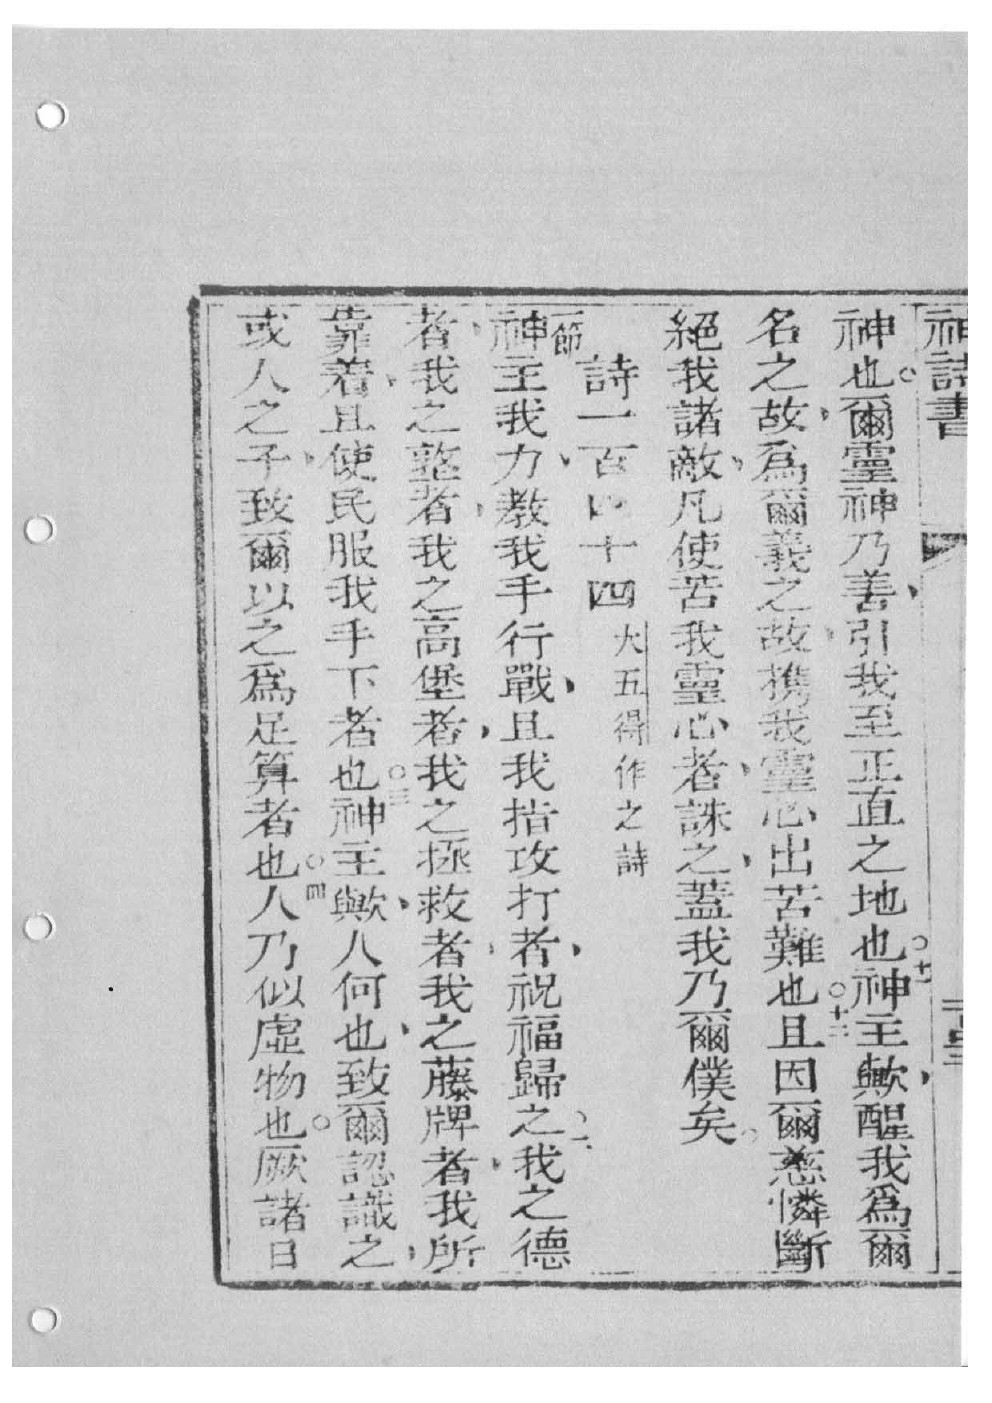 神詩書
神也○爾靈神乃善引我至正直之地也○十一神主歟醒我爲爾
名之故爲爾義之故携我靈心出苦難也○十二且因爾慈憐斷
絕我諸敵凡使苦我靈心者誅之蓋我乃爾僕矣○
詩一百四十四 大五得作之詩
一節神主我力教我手行戰且我指攻打者祝福歸之○二我之德
者我之墪者我之高堡者我之拯救者我之藤牌者我所
靠着且使民服我手下者也○三神主歟人何也致爾認識之
或人之子致爾以之爲足算者也○四人乃似虛物也○厥諸日